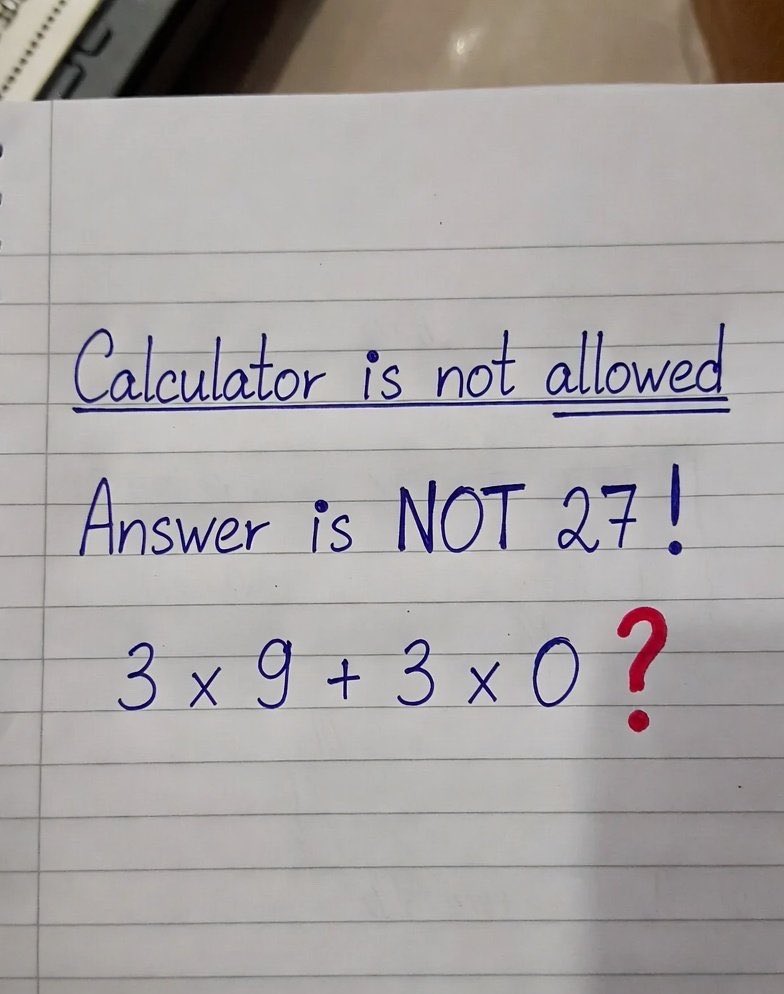 Calculator is not allowed
Answer is NOT 27!
3 x 9 + 3 x 0 ?